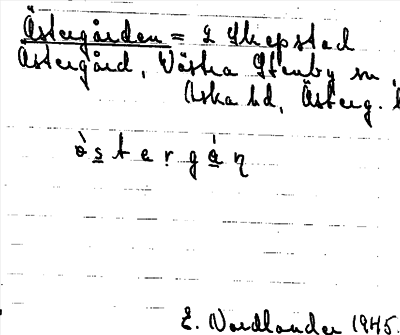 Östergården = L Skepstad
Östergård, Västra Stenby sn,
Aska hd, Österg. l
ò̀ s t e r g á̀ ṇ
E. Nordlander 1945.